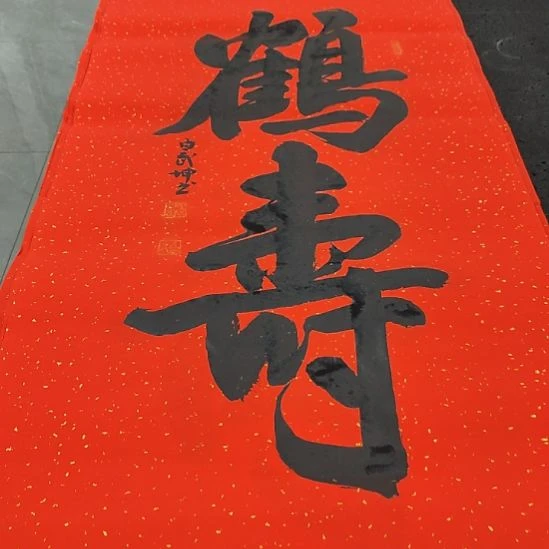 鶴
壽
白武坤书